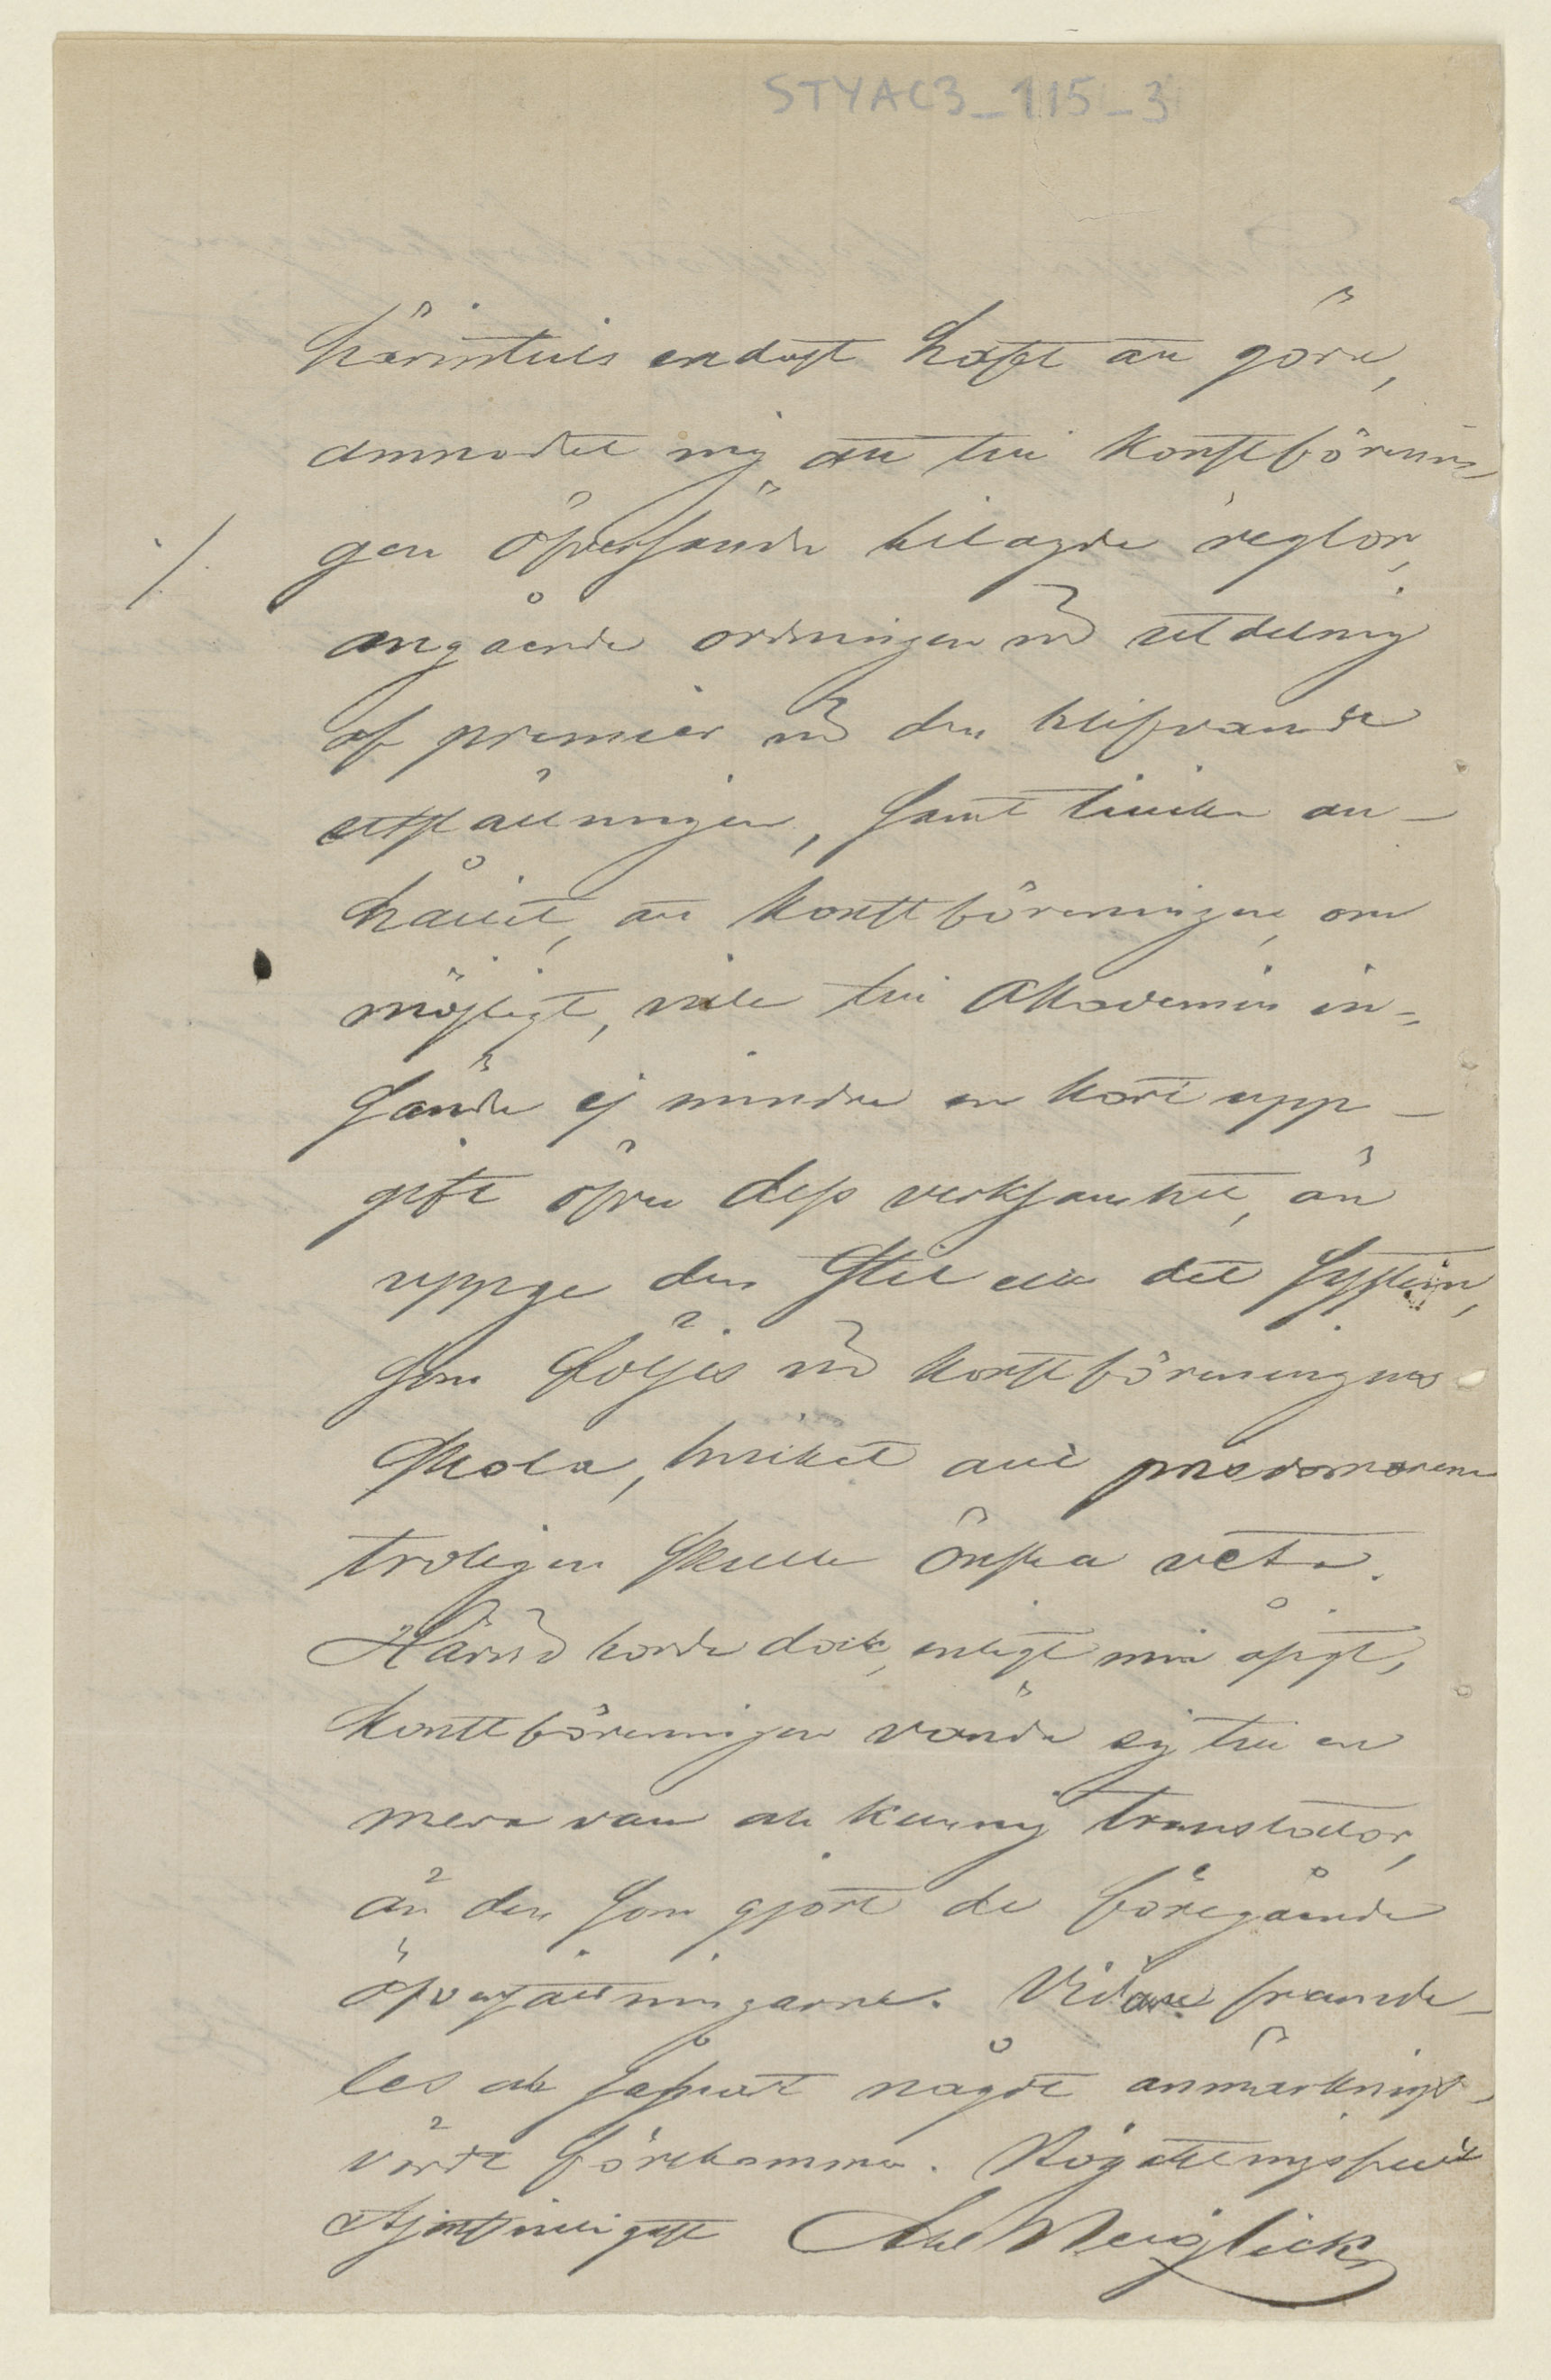 STYAC3_115_3
härintills endast haft att göra,
anmodat mig att till Konstförenin-
gen öfversända bilagda reglor,
./.
angående ordningen vid utdelning
af premier vid den blifvande
utställningen, samt tillika an-
hållit, att Konstföreningen, om
möjligt, ville till Akademin in-
sända ej mindre en kort upp-
gift öfver dess verksamhet, än
uppge den Stil eller det System,
som följes vid Konstföreningens
Skola, hvilket allt prisdomarene
troligen skulle önska veta.
Härvid borde dock, enligt min åsigt,
Konstföreningen vända sig till en
mera van och kunnig translator,
än den som gjort de föregående
öfversättningarne. Vidare framde-
les och såsnart något anmärknings-
värdt förekommer. Högaktningsfullt
tjenstvilligast Abel Neiglick